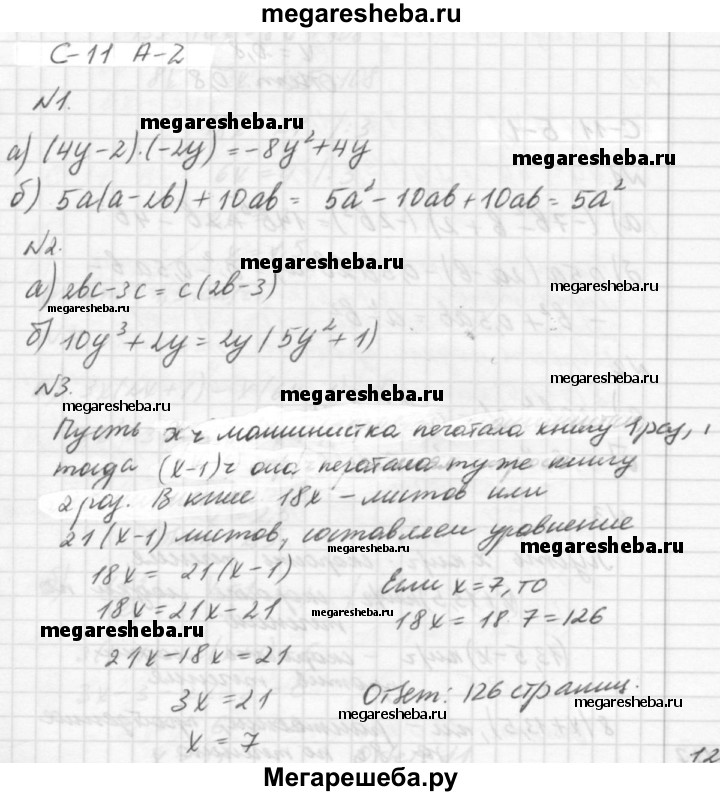 megaresheba.ru
С-11 А-2
№1.
megaresheba.ru
а) (4y-2)·(-2y) = -8y²+4y
megaresheba.ru
б) 5a(a-2b)+10ab = 5a²-10ab+10ab = 5a²
№2.
megaresheba.ru
а) 2bc-3c = c(2b-3)
megaresheba.ru
megaresheba.ru
б) 10y³+2y = 2y(5y²+1)
№3.
megaresheba.ru
megaresheba.ru
megaresheba.ru
Пусть x ч машинистка печатала книгу 1 раз,
тогда (x-1)ч она печатала ту же книгу
2 раз. В книге 18x - листов или
21(x-1) листов, составляем уравнение
megaresheba.ru
18x = 21(x-1)
Если x=7, то
18x = 21x-21
megaresheba.ru
18x = 18·7=126
megaresheba.ru
21x-18x = 21
megaresheba.ru
3x = 21
Ответ: 126 страниц.
megaresheba.ru
megaresheba.ru
x = 7
megaresheba.ru
12
Мегарешеба.ру